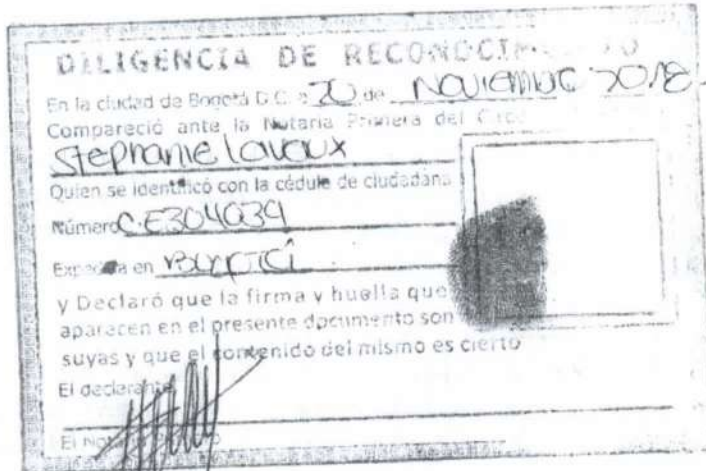 DILIGENCIA DE RECONOCIM
En la ciudad de Bogotá D.C. a 20 de Noviembre 2018
Compareció ante la Notaria Primera del
Stephanie Lavaux
Quien se identificó con la cédula de ciudadana
Número C.E304034
Expedida en Bogotá
y Declaró que la firma y huella que
aparecen en el presente documento son
suyas y que el contenido del mismo es cierto
El declarante
El